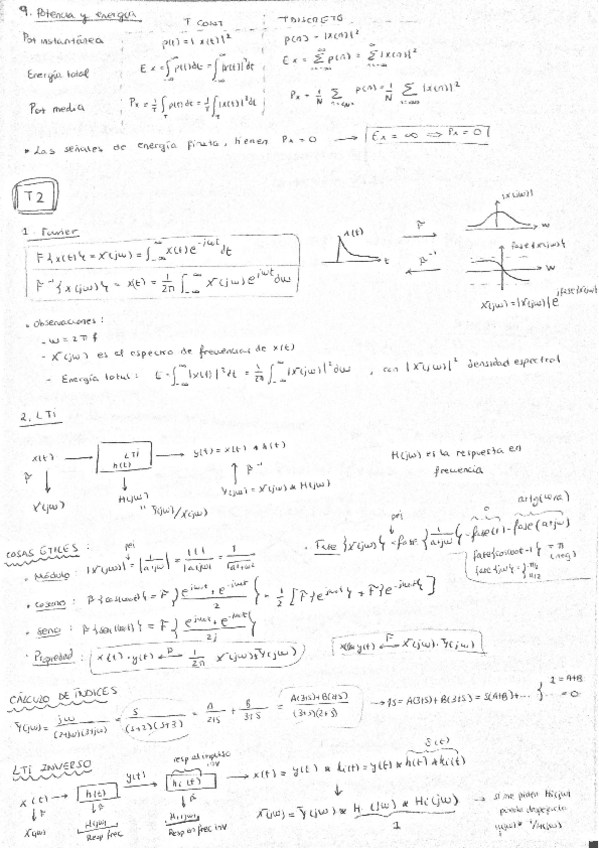 9. Potencia y energía
T CONT
T DISCRETO
Pot instantánea p(t) = |x(t)|² p(n) = |x(n)|²
Energía total Ex = ∫_{-∞}^{∞} p(t)dt = ∫_{-∞}^{∞} |x(t)|²dt Ex = Σ p(n) = Σ |x(n)|²
Pot media Px = 1/T ∫_T p(t)dt = 1/T ∫_T |x(t)|²dt Px = 1/N Σ p(n) = 1/N Σ |x(n)|²
• Las señales de energía finita, tienen Px = 0 → Ex = ∞ ⇒ Px = 0
T2
1. Fourier
F{x(t)} = X(jω) = ∫_{-∞}^{∞} x(t)e^{-jωt}dt
F⁻¹{X(jω)} = x(t) = 1/2π ∫_{-∞}^{∞} X(jω)e^{jωt}dω
x(t)
t
F
F⁻¹
|X(jω)|
w
fase{X(jω)}
w
X(jω) = |X(jω)|e^{jfase{X(jω)}}
• Observaciones:
- ω = 2πf
- X(jω) es el espectro de frecuencias de x(t)
- Energía total: E = ∫_{-∞}^{∞} |x(t)|²dt = 1/2π ∫_{-∞}^{∞} |X(jω)|²dω, con |X(jω)|² densidad espectral
2. LTI
x(t) → LTI h(t) → y(t) = x(t) * h(t)
H(jω) es la respuesta en
frecuencia
F
F⁻¹
X(jω)
H(jω)
" Y(jω)/X(jω)
Y(jω) = X(jω) * H(jω)
COSAS ÚTILES:
• Módulo: |X(jω)| = |1/(a+jω)| = |1|/|a+jω| = 1/√(a²+ω²)
• Fase {X(jω)} = fase {1/(a+jω)} = fase(1) - fase(a+jω)
0
artg(ω/a)
• Coseno: F{cos(ωt)} = F{(e^{jωt} + e^{-jωt})/2} = 1/2 [F{e^{jωt}} + F{e^{-jωt}}]
• Seno:
• Propiedad: x(t)·y(t) F 1/2π X(jω)*Y(jω)
x(t)*y(t) F X(jω)·Y(jω)
CÁLCULO DE ÍNDICES
Y(jω) = jω/((2+jω)(3+jω)) = S/((S+2)(S+3)) = A/(2+S) + B/(3+S) = (A(3+S)+B(2+S))/((3+S)(2+S)) → 1S = A(3+S)+B(2+S) = S(A+B)+...
= 0
LTI INVERSO
resp al impulso
inv
δ(t)
x(t) → h(t) y(t) → hi(t) → x(t) = y(t) * hi(t) = x(t) * h(t) * hi(t)
F
X(jω)
H(jω)
Resp frec
Hi(jω)
Resp en frec inv
X(jω) = X(jω) * H(jω) * Hi(jω)
1
→ si me piden Hi(jω)
puedo despejarla
1/H(jω)